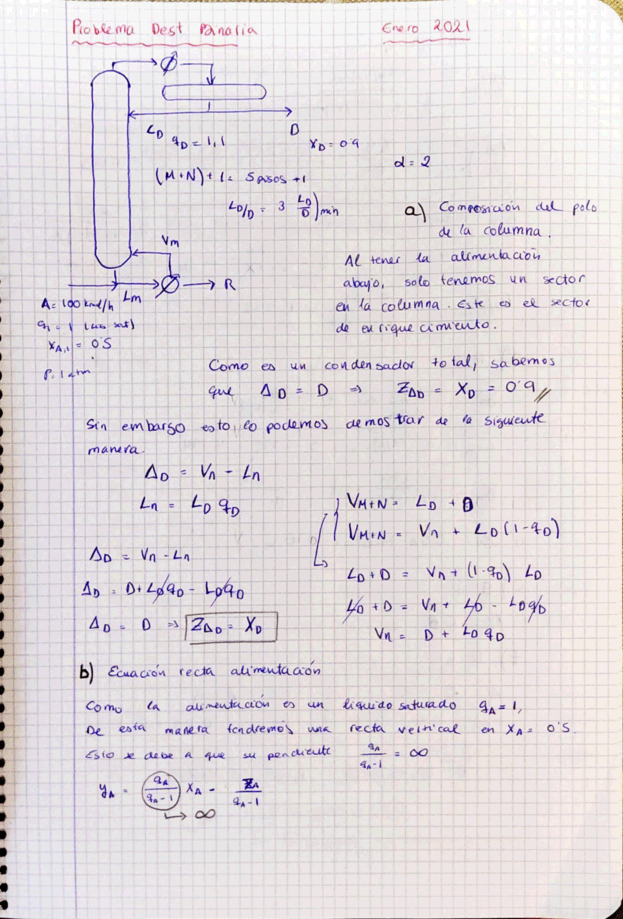 Problema Dest Binaria Enero 2021
L_D q_D = 1,1 D X_D = 0'9
α = 2
(M+N)+1 = 5 pisos +1
L_D/D = 3 L_D/D)min
V_m
L_m R
A = 100 kmol/h
X_A,1 = 0'5
P: 1 atm
a) Composición del polo
de la columna.
Al tener la alimentación
abajo, solo tenemos un sector
en la columna. Este es el sector
de enriquecimiento.
Como es un condensador total, sabemos
que Δ_D = D => Z_ΔD = X_D = 0'9 //
Sin embargo esto, lo podemos demostrar de la siguiente
manera.
Δ_D = V_n - L_n
L_n = L_D q_D
V_M+N = L_D + D
V_M+N = V_n + L_D (1-q_D)
Δ_D = V_n - L_n
L_D + D = V_n + (1-q_D) L_D
Δ_D = D + L_D q_D - L_D q_D
L_D + D = V_n + L_D - L_D q_D
Δ_D = D => Z_ΔD = X_D
V_n = D + L_D q_D
b) Ecuación recta alimentación
Como la alimentación es un líquido saturado q_A = 1,
De esta manera tendremos una recta vertical en X_A = 0'5.
Esto se debe a que su pendiente q_A/(q_A-1) = ∞
y_A = q_A/(q_A-1) X_A - Z_A/(q_A-1)
↳ ∞